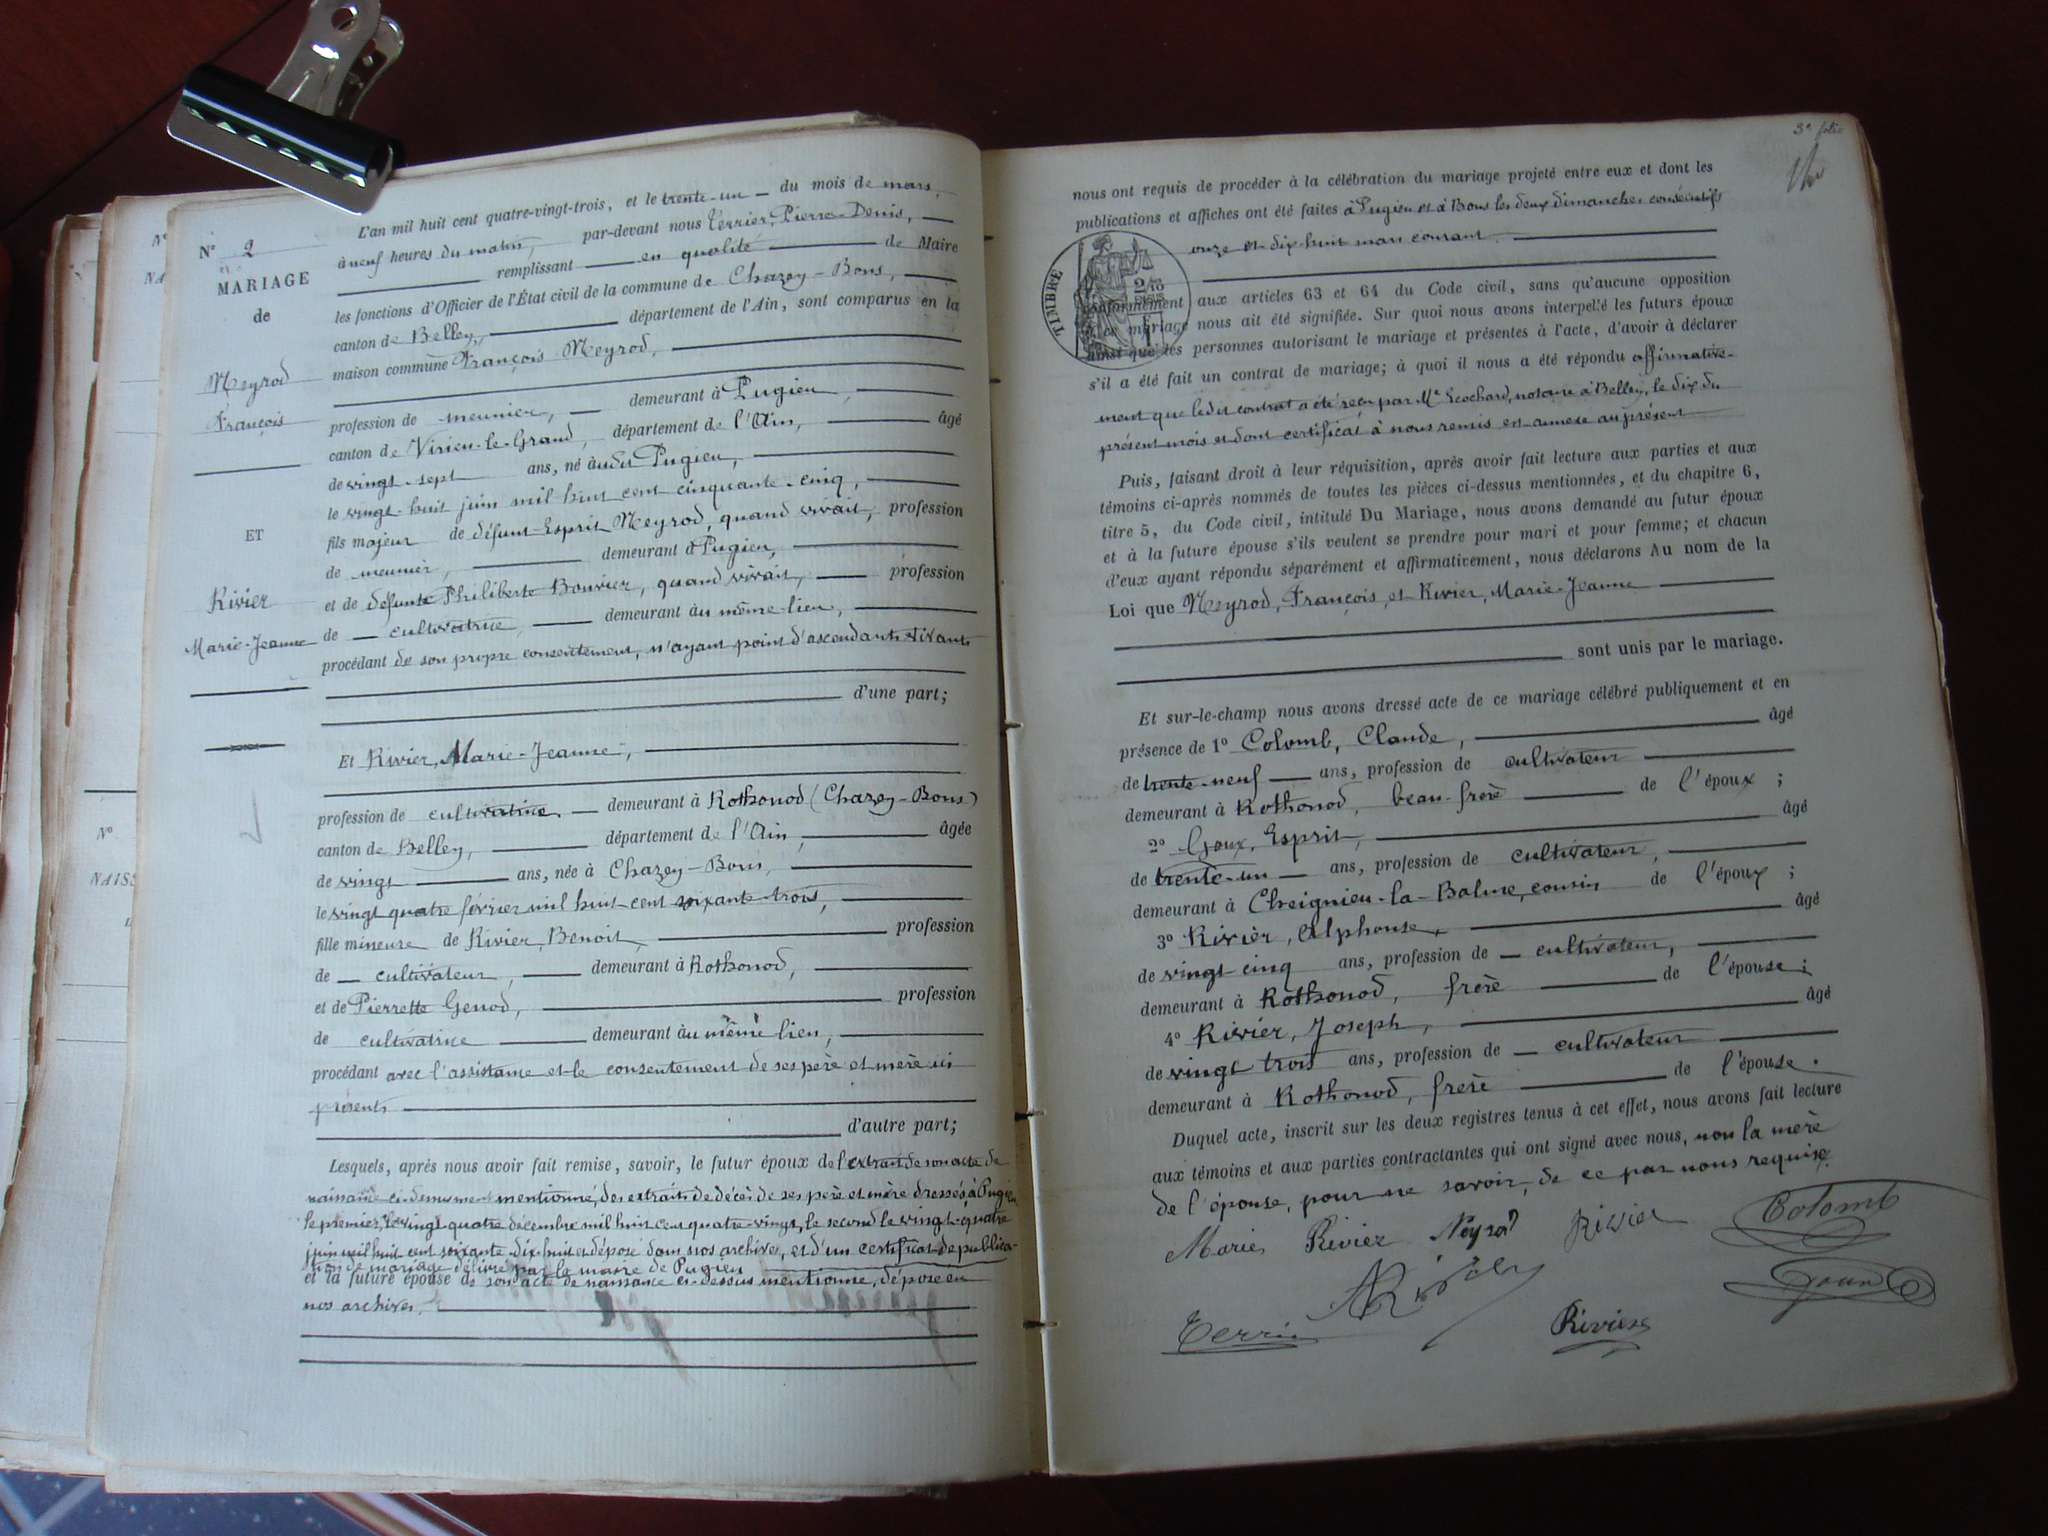 N° 2
MARIAGE
de
Neyrod
François
ET
Rivier
Marie-Jeanne
L'an mil huit cent quatre-vingt-trois, et le trente-un du mois de mars,
à neuf heures du matin, par-devant nous Terrier, Pierre-Denis,
remplissant en qualité de Maire
les fonctions d'Officier de l'État civil de la commune de Chazey-Bons,
canton de Belley, département de l'Ain, sont comparus en la
maison commune François Neyrod,
profession de meunier, demeurant à Pugieu,
canton de Virieu-le-Grand, département de l'Ain, âgé
de vingt-sept ans, né à udit Pugieu,
le vingt-huit juin mil huit cent cinquante-cinq,
fils majeur de défunt Esprit Neyrod, quand vivait, profession
de meunier, demeurant à Pugieu,
et de défunte Philiberte Bouvier, quand vivait, profession
de cultivatrice, demeurant au même lieu,
procédant de son propre consentement, n'ayant point d'ascendants vivants
d'une part;
Et Rivier, Marie-Jeanne,
profession de cultivatrice, demeurant à Rothonod (Chazey-Bons)
canton de Belley, département de l'Ain, âgée
de vingt ans, née à Chazey-Bons,
le vingt quatre février mil huit-cent soixante-trois,
fille mineure de Rivier, Benoit, profession
de cultivateur, demeurant à Rothonod,
et de Pierrette Genod, profession
de cultivatrice demeurant au même lieu,
procédant avec l'assistance et le consentement de ses père et mère ici
présents
d'autre part;
Lesquels, après nous avoir fait remise, savoir, le futur époux de l'extrait de son acte de
naissance ci-dessus mentionné, des extraits de décès de ses père et mère dressés à Pugieu,
le premier, le vingt-quatre décembre mil huit cent quatre-vingt, le second le vingt-quatre
juin mil huit cent soixante-dix-huit et déposé dans nos archives, et d'un certificat de publica-
tion de mariage délivré par le maire de Pugieu
et la future épouse de son acte de naissance ci-dessus mentionné, déposé en
nos archives.
3e folio
nous ont requis de procéder à la célébration du mariage projeté entre eux et dont les
publications et affiches ont été faites à Pugieu et à Bons les deux dimanches consécutifs
onze et dix-huit mars courant.
TIMBRE
conformément aux articles 63 et 64 du Code civil, sans qu'aucune opposition
à ce mariage nous ait été signifiée. Sur quoi nous avons interpelé les futurs époux
ainsi que les personnes autorisant le mariage et présentes à l'acte, d'avoir à déclarer
s'il a été fait un contrat de mariage; à quoi il nous a été répondu affirmative-
ment que ledit contrat a été reçu par Me Ecochard, notaire à Belley, le dix du
présent mois et dont certificat à nous remis est annexé au présent
Puis, faisant droit à leur réquisition, après avoir fait lecture aux parties et aux
témoins ci-après nommés de toutes les pièces ci-dessus mentionnées, et du chapitre 6,
titre 5, du Code civil, intitulé Du Mariage, nous avons demandé au futur époux
et à la future épouse s'ils veulent se prendre pour mari et pour femme; et chacun
d'eux ayant répondu séparément et affirmativement, nous déclarons Au nom de la
Loi que Neyrod, François, et Rivier, Marie-Jeanne
sont unis par le mariage.
Et sur-le-champ nous avons dressé acte de ce mariage célébré publiquement et en
présence de 1° Colomb, Claude, âgé
de trente-neuf ans, profession de cultivateur
demeurant à Rothonod, beau-frère de l'époux;
2° Goux, Esprit, âgé
de trente-un ans, profession de cultivateur,
demeurant à Cheignieu-la-Balme, cousin de l'époux;
3° Rivier, Alphonse, âgé
de vingt-cinq ans, profession de cultivateur,
demeurant à Rothonod, frère de l'épouse;
4° Rivier, Joseph, âgé
de vingt trois ans, profession de cultivateur
demeurant à Rothonod, frère de l'épouse.
Duquel acte, inscrit sur les deux registres tenus à cet effet, nous avons fait lecture
aux témoins et aux parties contractantes qui ont signé avec nous, non la mère
de l'épouse, pour ne savoir, de ce par nous requise.
Marie Rivier Neyrod Rivier Colomb
Goux
Terrier Rivier